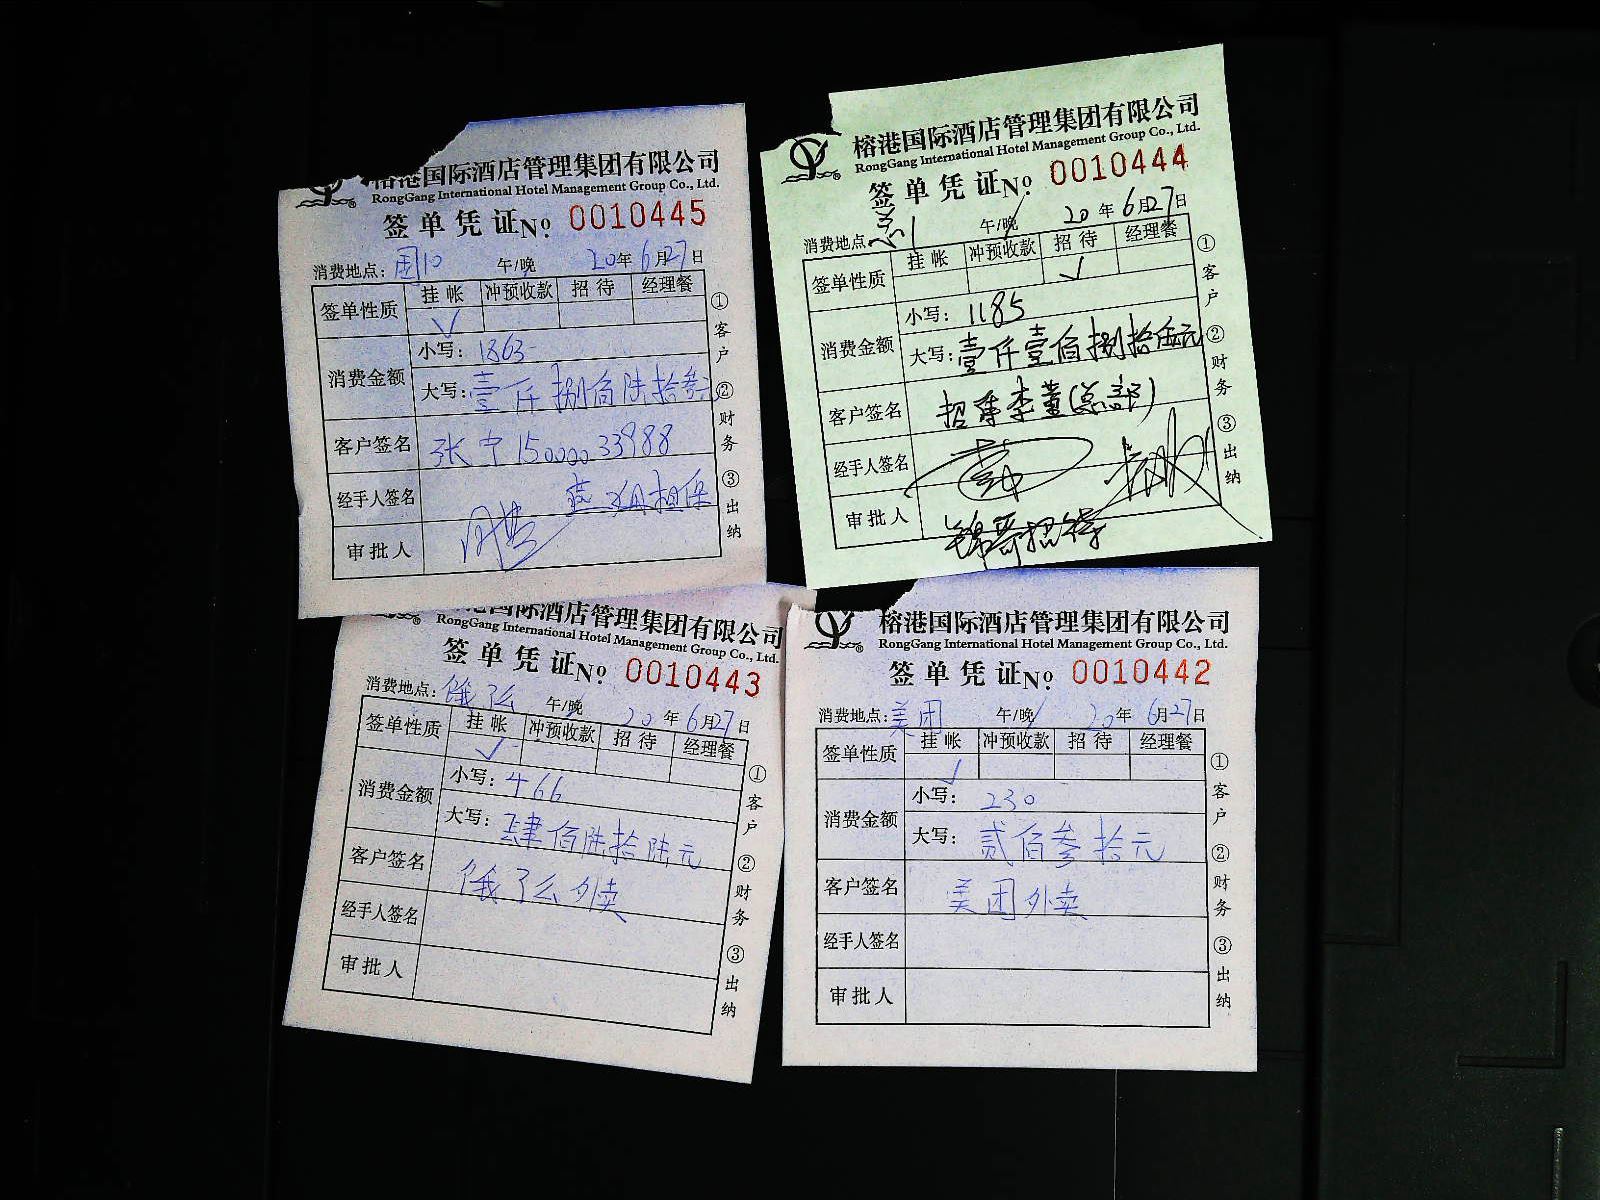 港国际酒店管理集团有限公司
RongGang International Hotel Management Group Co., Ltd.
签单凭证 No. 0010445
消费地点: 国10 午/晚 20年6月27日
签单性质 挂帐 冲预收款 招待 经理餐
√
消费金额 小写: 1863
大写: 壹仟捌佰陆拾叁元
客户签名 张宁 15000033988
经手人签名 担保
审批人
① 客户 ② 财务 ③ 出纳
榕港国际酒店管理集团有限公司
RongGang International Hotel Management Group Co., Ltd.
签单凭证 No. 0010444
消费地点: 午/晚 20年6月27日
签单性质 挂帐 冲预收款 招待 经理餐
√
消费金额 小写: 1185
大写: 壹仟壹佰捌拾伍元
客户签名 招待李董(总部)
经手人签名
审批人 锦晋招待
① 客户 ② 财务 ③ 出纳
港国际酒店管理集团有限公司
RongGang International Hotel Management Group Co., Ltd.
签单凭证 No. 0010443
消费地点: 饿了么 午/晚 20年6月27日
签单性质 挂帐 冲预收款 招待 经理餐
√
消费金额 小写: 466
大写: 肆佰陆拾陆元
客户签名 饿了么外卖
经手人签名
审批人
① 客户 ② 财务 ③ 出纳
榕港国际酒店管理集团有限公司
RongGang International Hotel Management Group Co., Ltd.
签单凭证 No. 0010442
消费地点: 美团 午/晚 20年6月27日
签单性质 挂帐 冲预收款 招待 经理餐
√
消费金额 小写: 230
大写: 贰佰参拾元
客户签名 美团外卖
经手人签名
审批人
① 客户 ② 财务 ③ 出纳